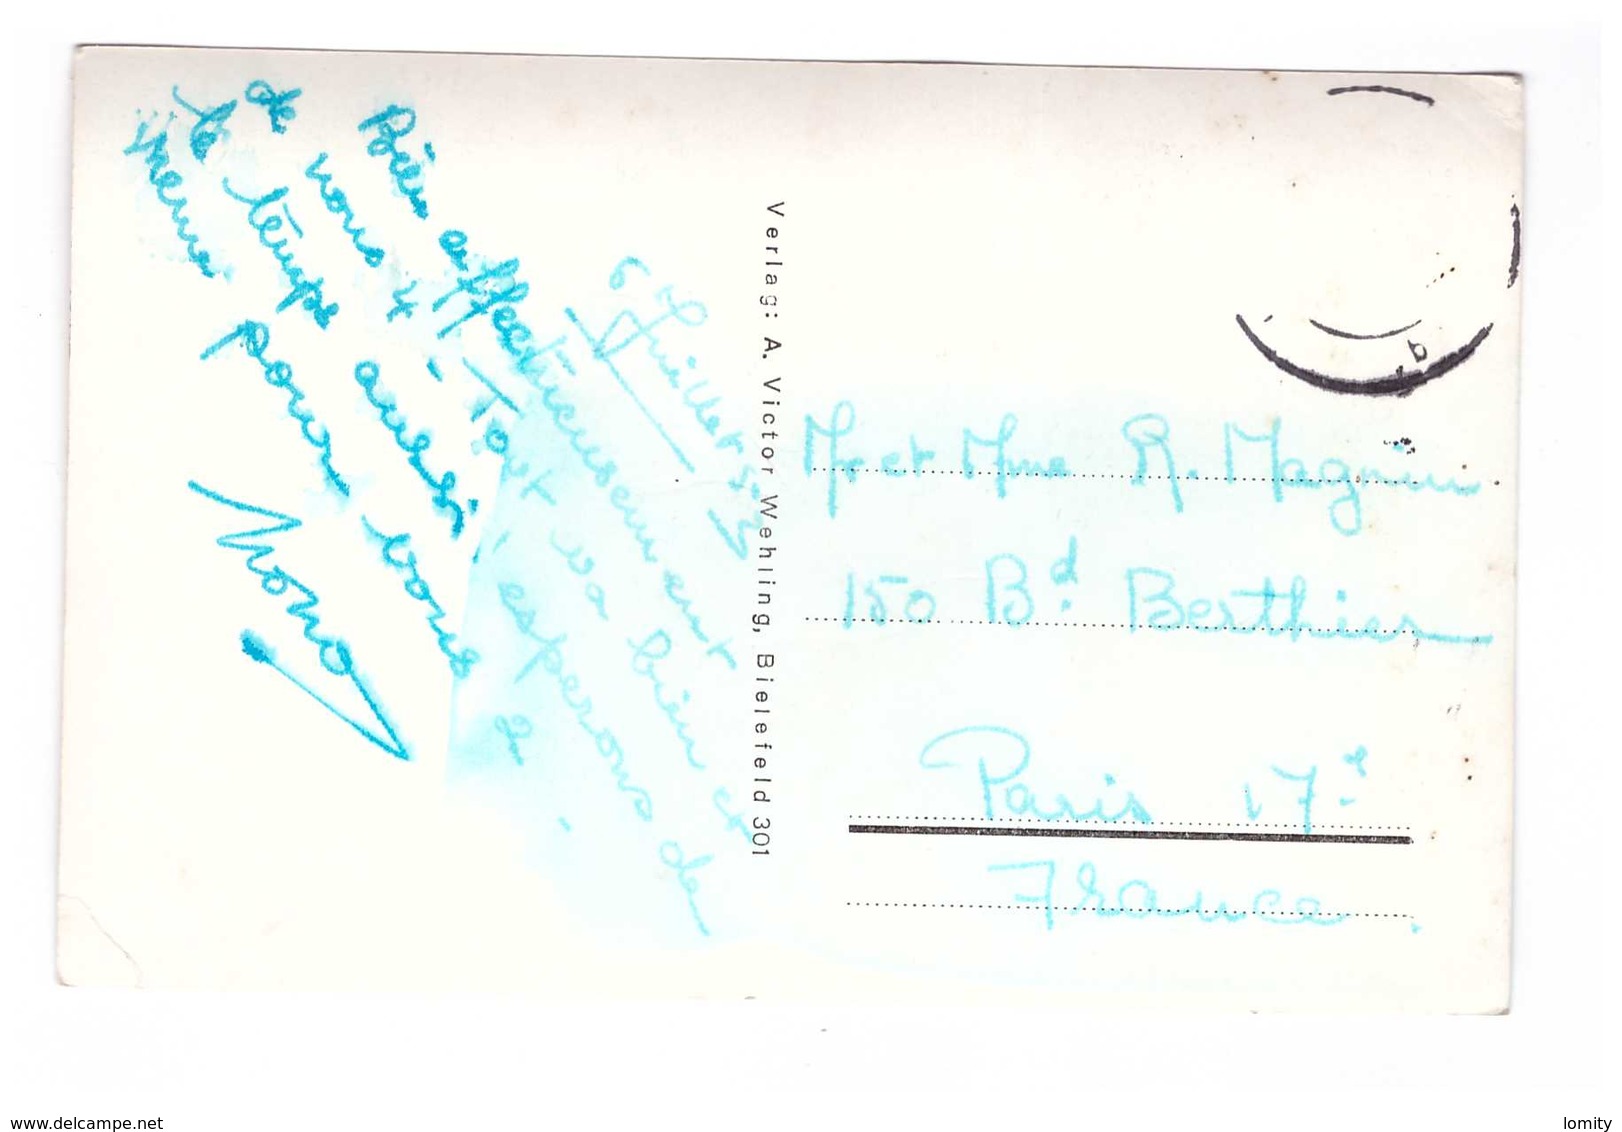 6 Juillet 53
Bien affectueusement
de nous 4 - Tout va bien et
le temps aussi ; espérons de
même pour vous 2 -
Nono
Verlag: A. Victor Wehling, Bielefeld 301
Mr et Mme R. Magnin
150 Bd. Berthier
Paris 17e
France.
www.delcampe.net
lomity